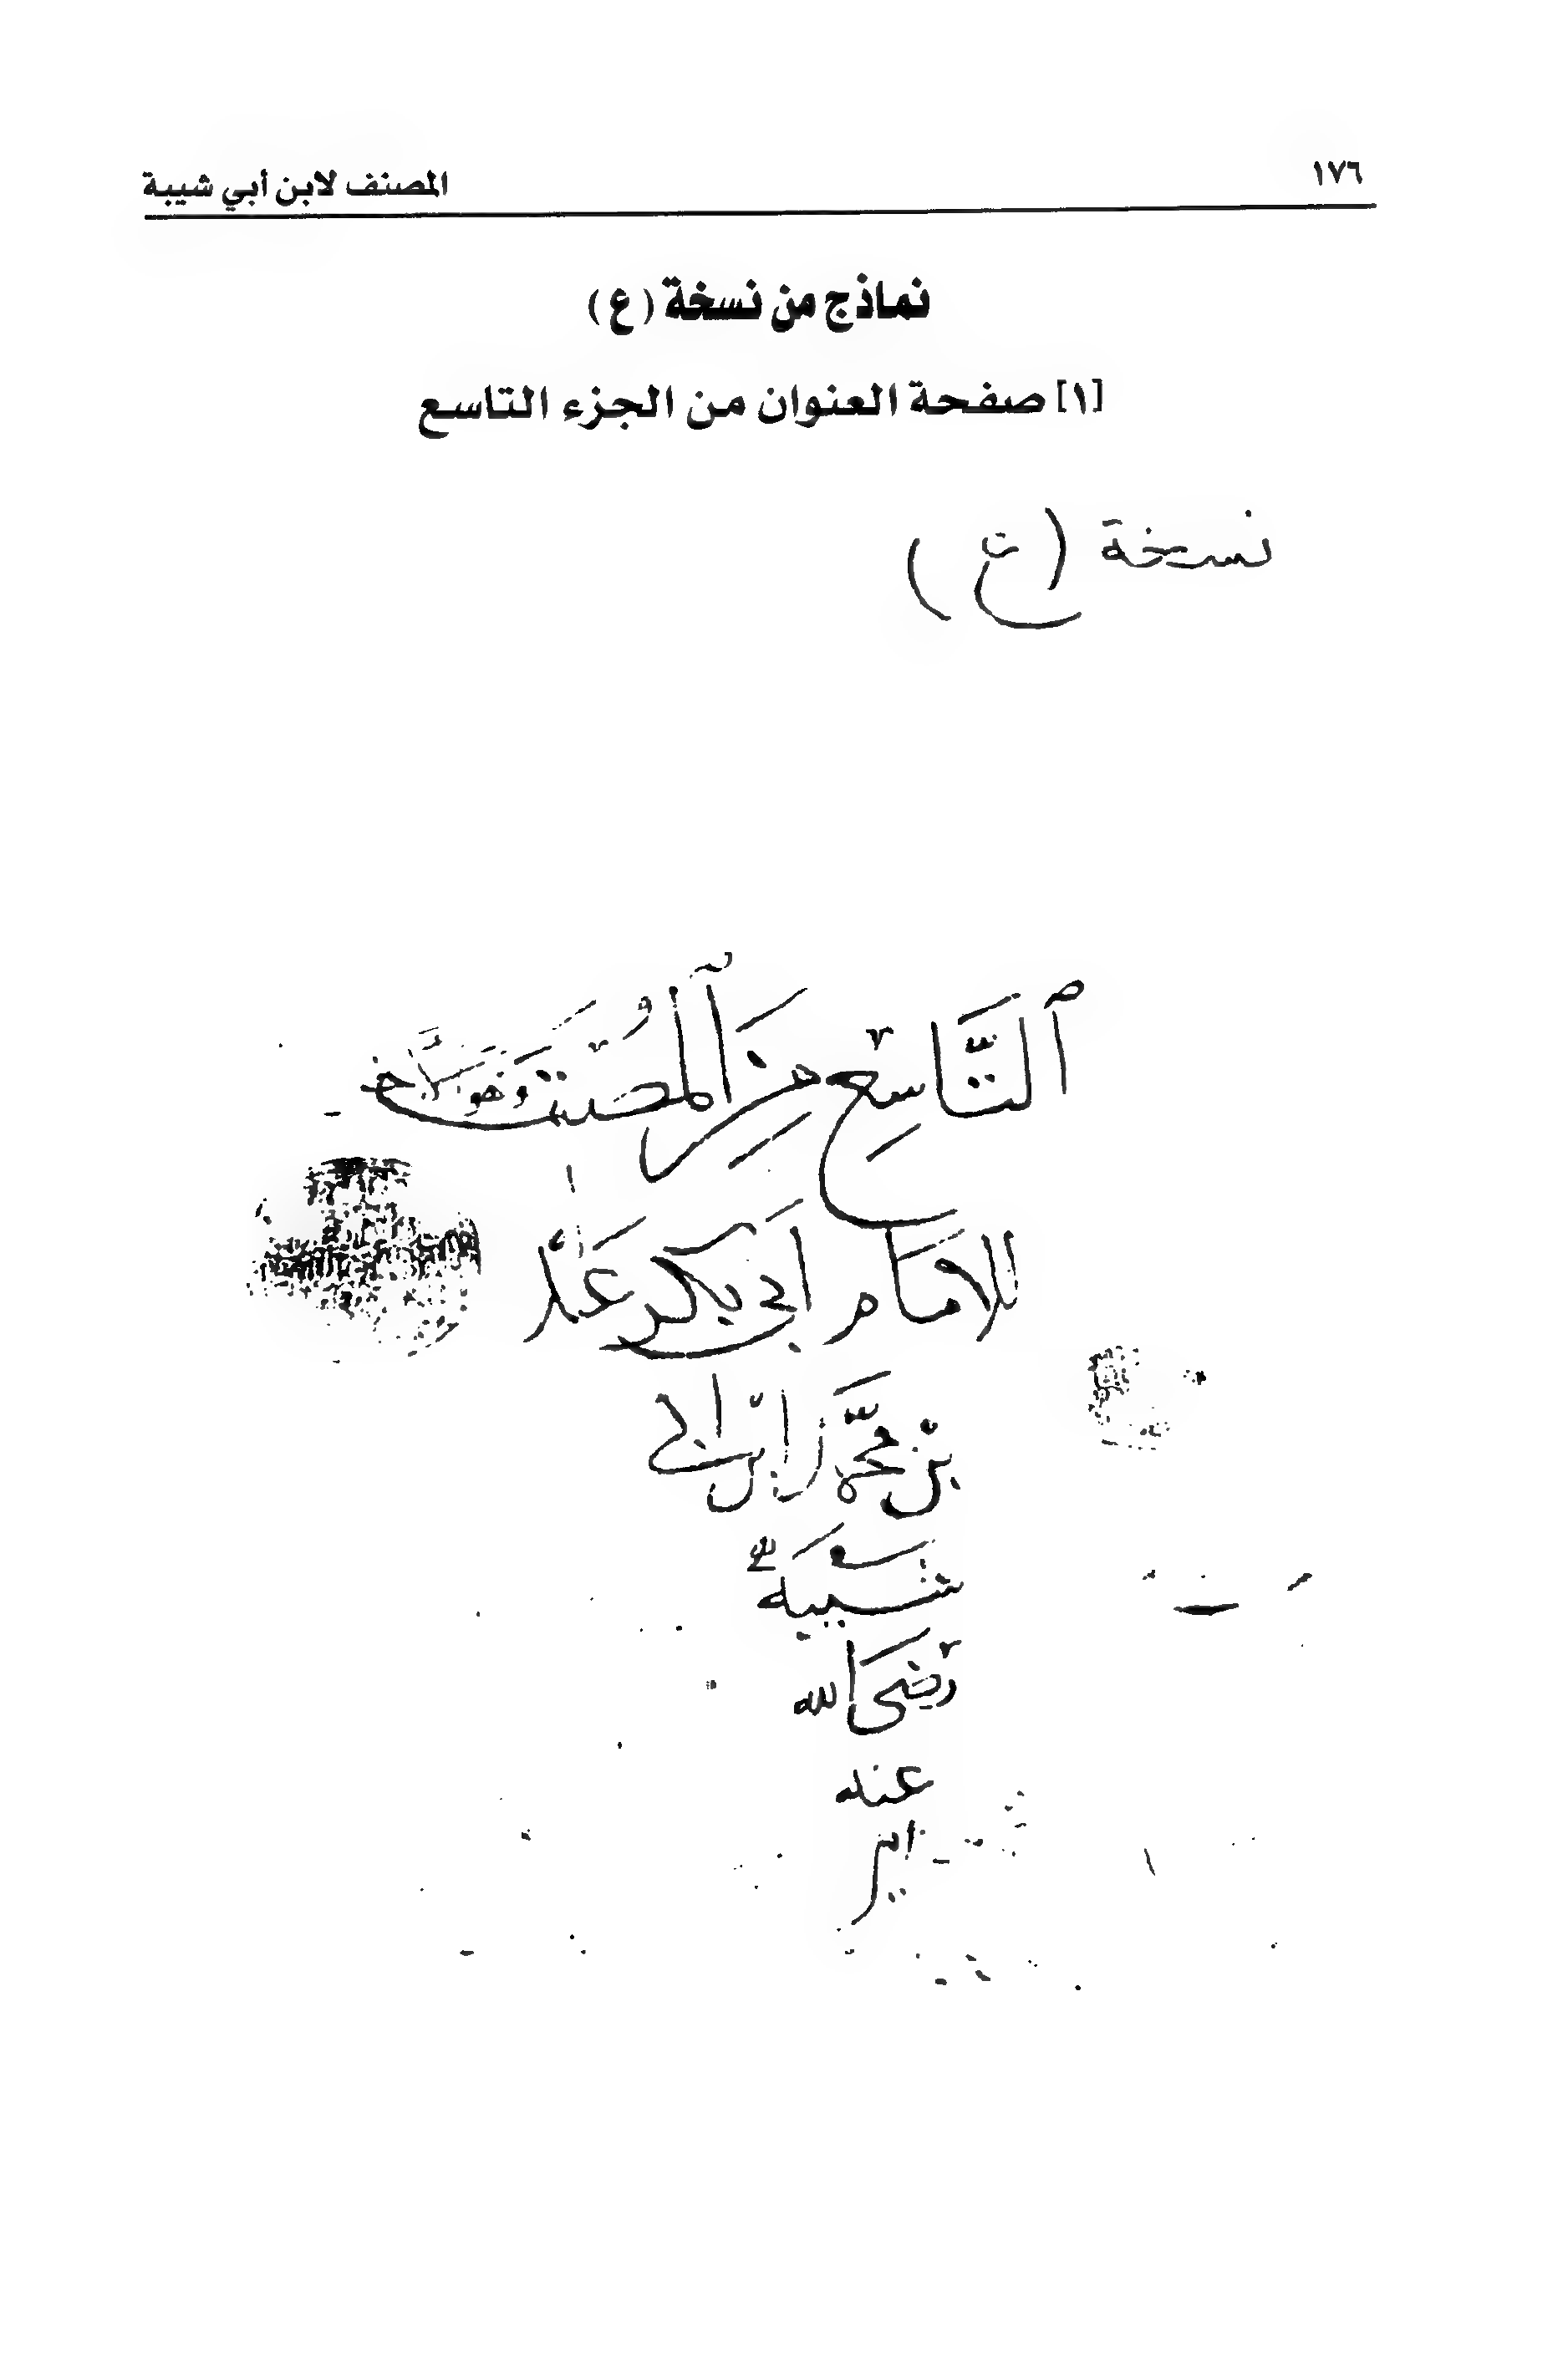 ١٧٦ المصنف لابن أبي شيبة
نماذج من نسخة (ع)
[١] صفحة العنوان من الجزء التاسع
نسخة (ع)
ٱلتَّاسِع مِنَ ٱلمُصَنَّف وَهُوَ الآخر
للامَام أبي بكر عَبْد
بْن محَمَّد ابن ابى
شَيْبَة
رَضى الله
عنه